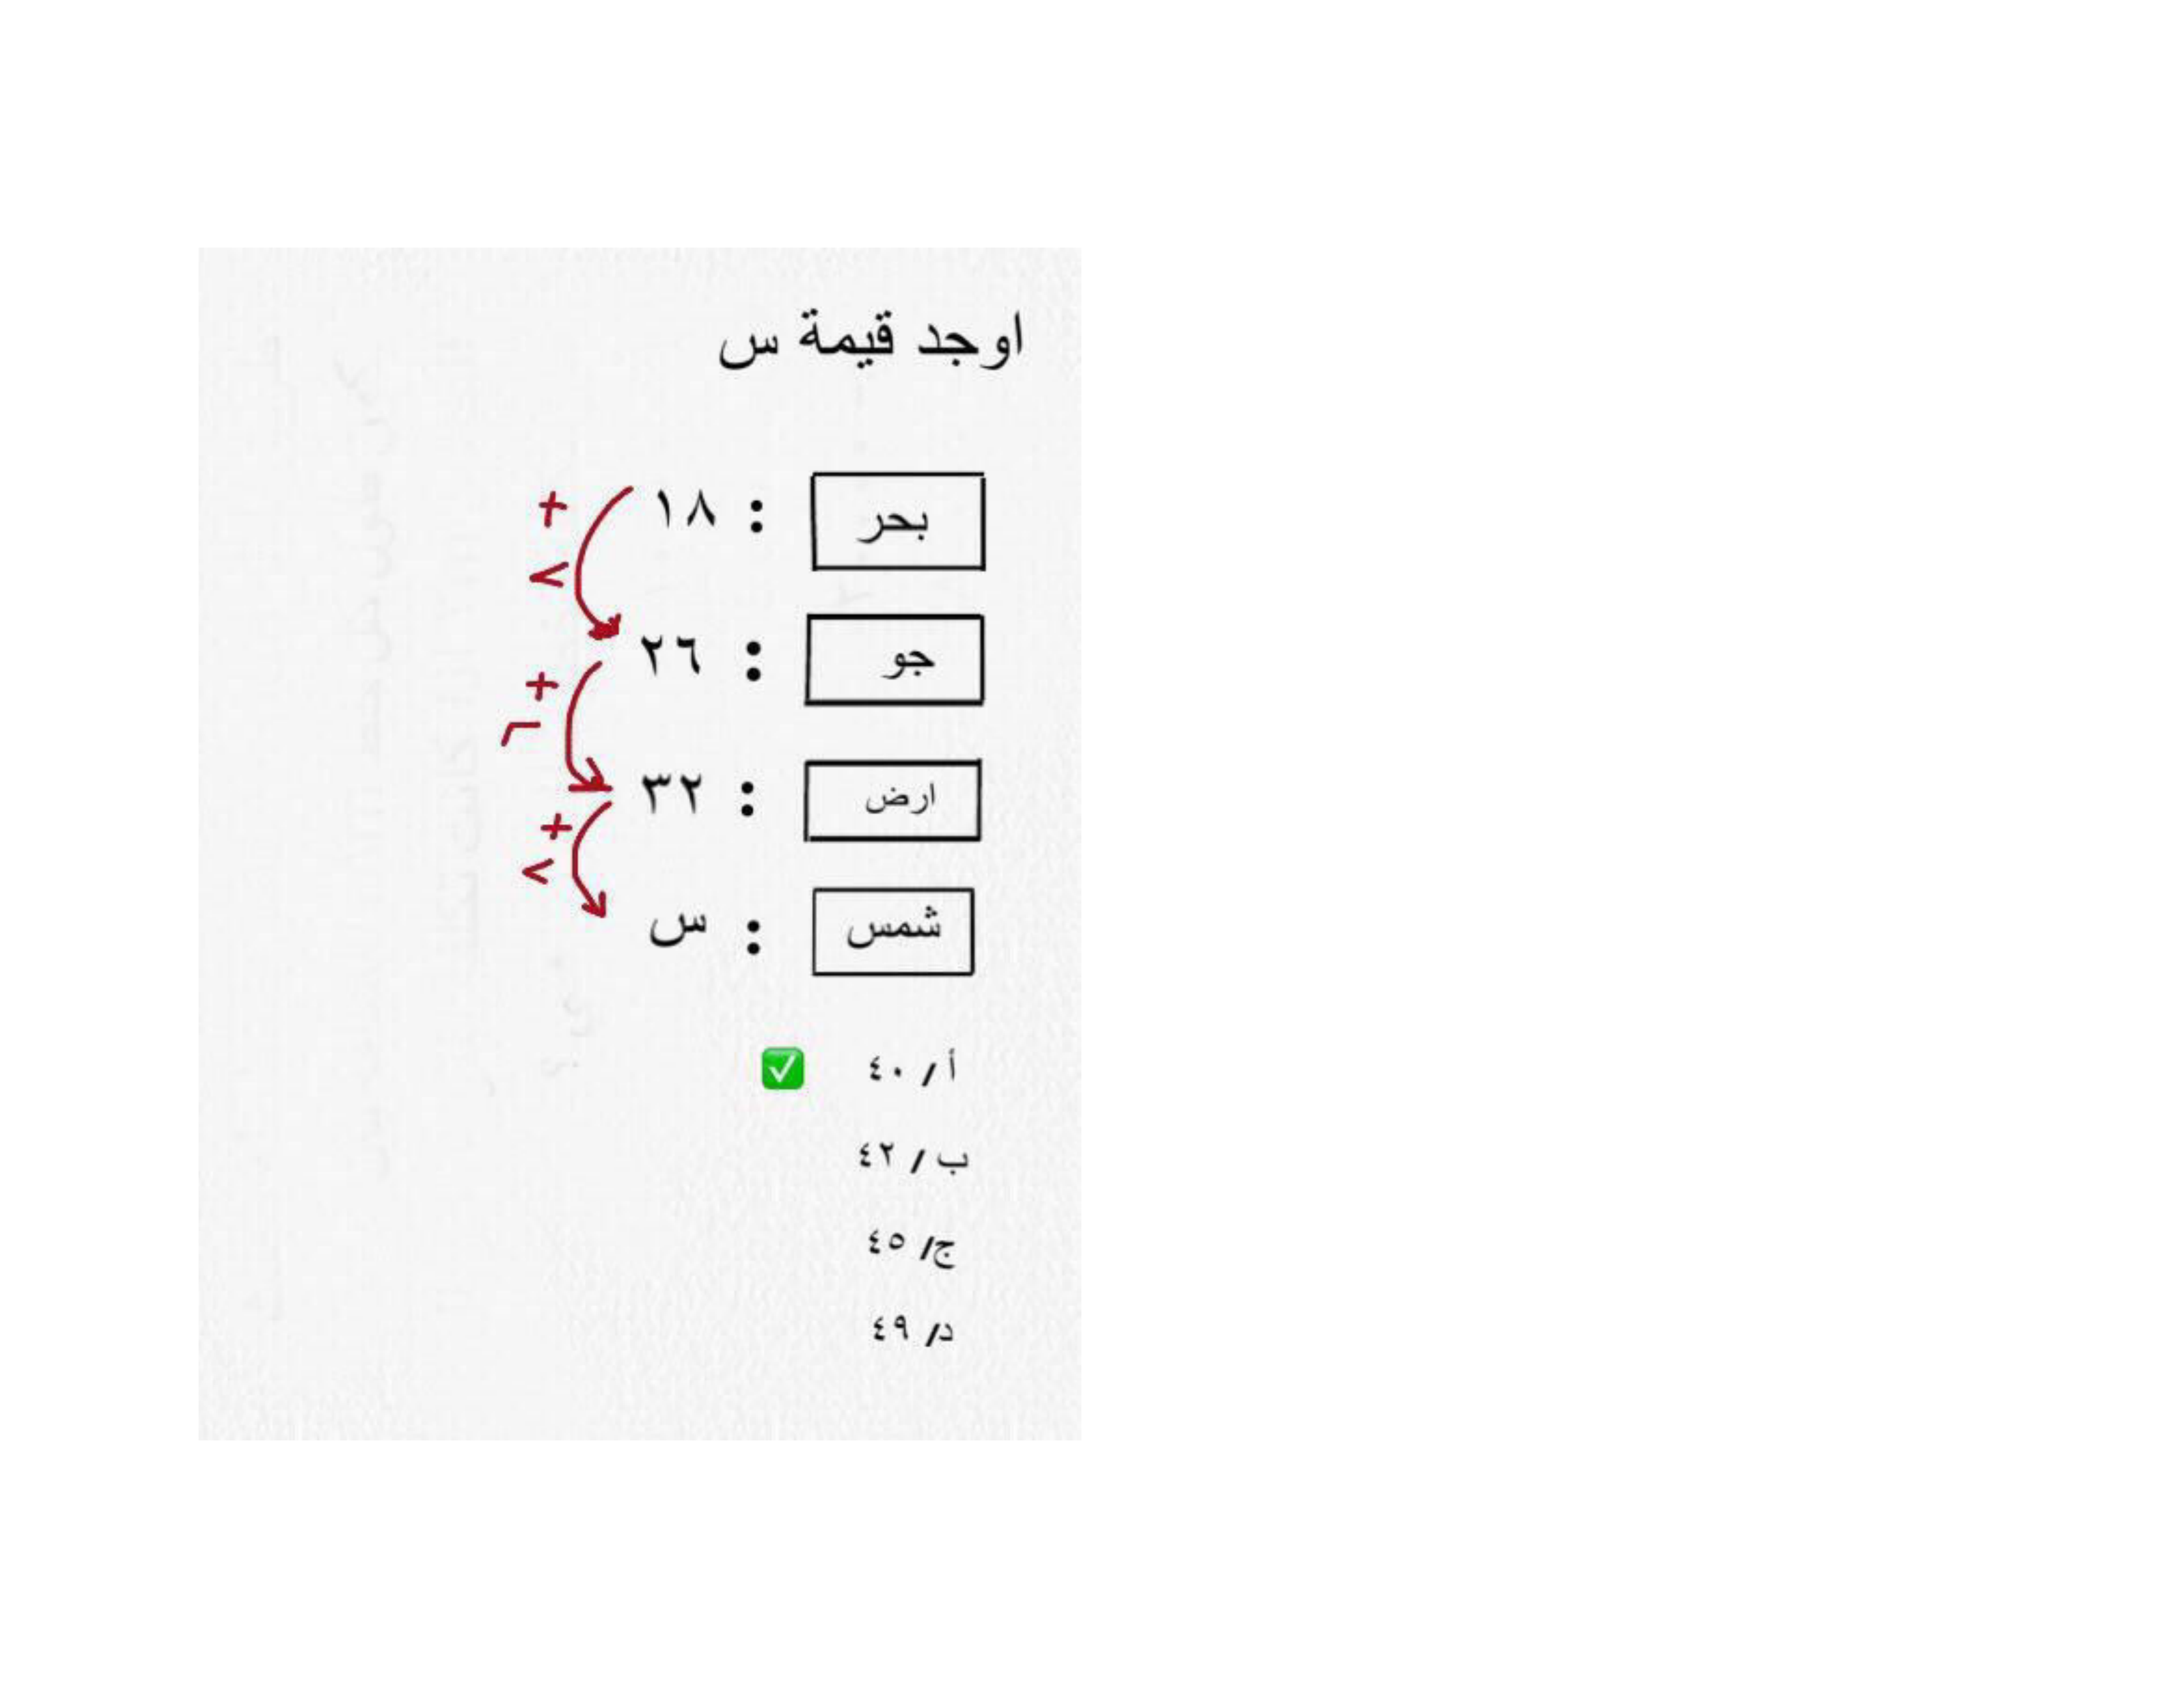 اوجد قيمة س
بحر : ١٨
+ ٨
جو : ٢٦
+ ٦
ارض : ٣٢
+ ٨
شمس : س
أ / ٤٠ ✅
ب / ٤٢
ج/ ٤٥
د/ ٤٩